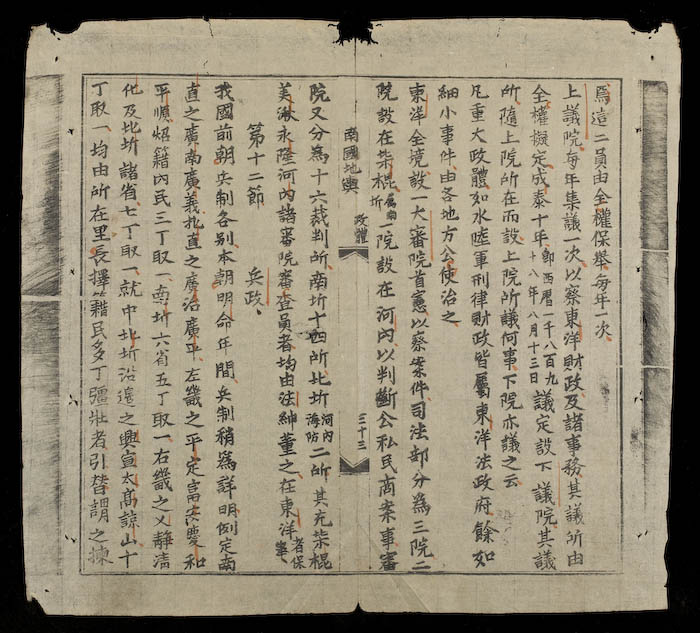 焉這二員由全權保舉每年一次
上議院每年集議一次以察東洋財政及諸事務其議所由
全權擬定成泰十年卽西曆一千八百九十八年八月十三日議定設下議院其議
所隨上院所在而設上院所議何事下院亦議之云
凡重大政體如水陸軍刑律財政皆屬東洋法政府餘如
細小事件由各地方公使治之
東洋全境設一大審院首憲以察案件司法部分爲三院二
院設在柴棍屬南圻一院設在河內以判斷公私民商案事審
南國地輿 政體 三十三
院又分爲十六裁判所南圻十四所北圻河內海防二所其充柴棍
美湫永隆河內諸審院審查員者均由法紳董之在東洋者保舉
第十二節 兵政
我國前朝兵制各別本朝明命年間兵制稍爲詳明例定南
直之廣南廣義北直之廣治廣平左畿之平定富安慶和
平順炤籍內民三丁取一南圻六省五丁取一右畿之乂靜清
化及北圻諸省七丁取一就中北圻沿邊之興宣太高諒山十
丁取一均由所在里長擇籍民多丁彊壯者引替謂之揀